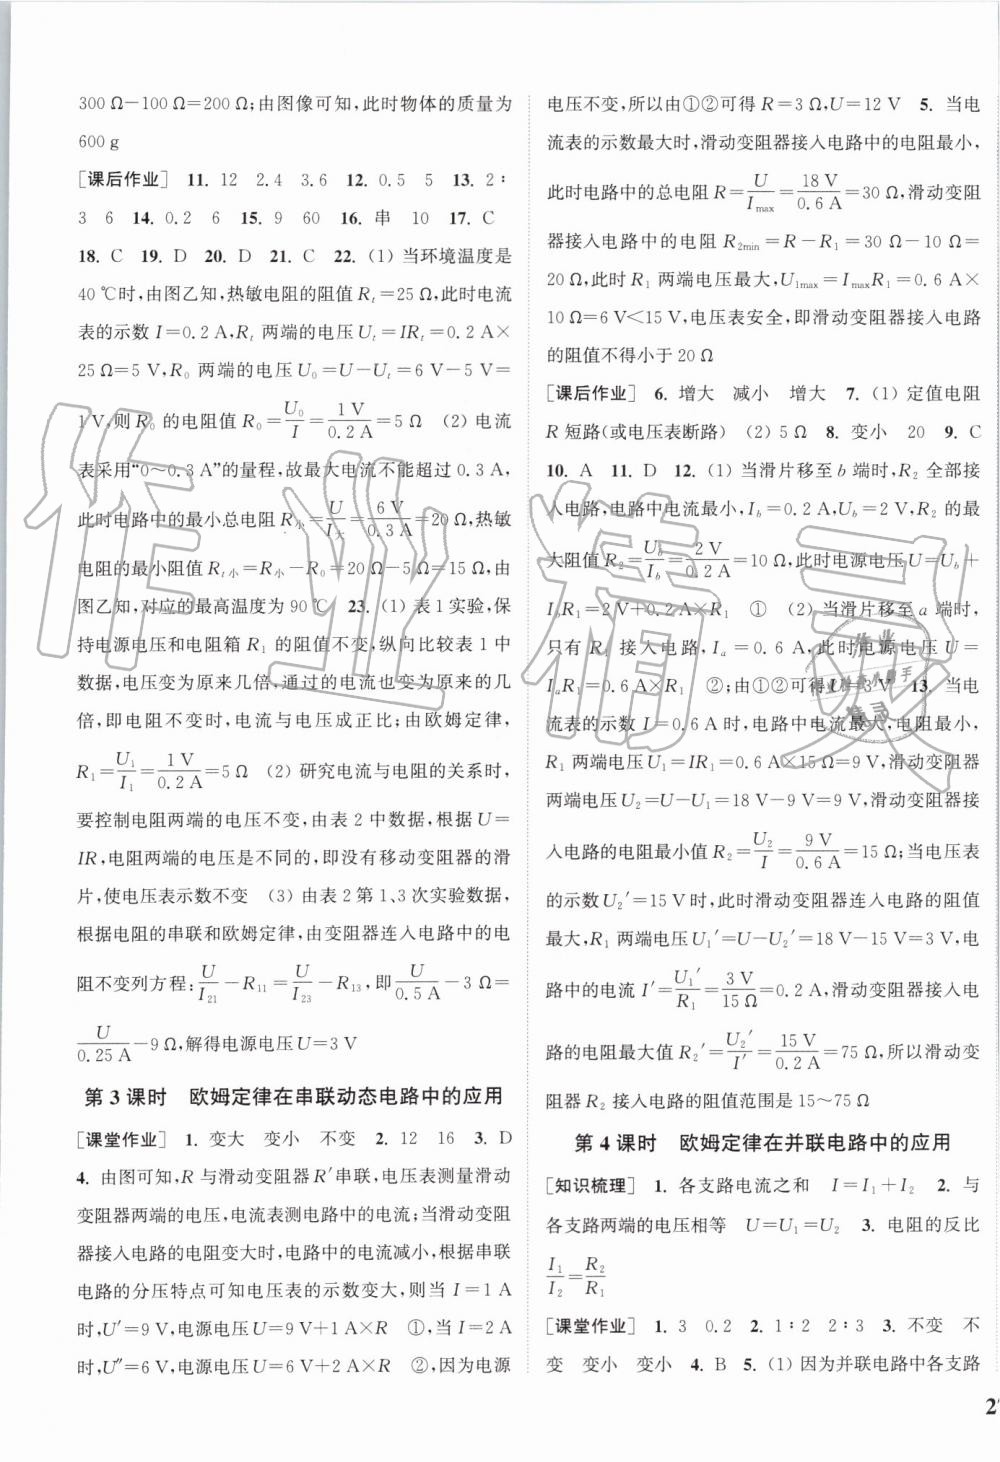 300 Ω－100 Ω＝200 Ω;由图像可知,此时物体的质量为
600 g
[课后作业] 11. 12 2.4 3.6 12. 0.5 5 13. 2∶
3 6 14. 0.2 6 15. 9 60 16. 串 10 17. C
18. C 19. D 20. D 21. C 22. (1) 当环境温度是
40 ℃时,由图乙知,热敏电阻的阻值 Rt＝25 Ω,此时电流
表的示数 I＝0.2 A,Rt 两端的电压 Ut＝IRt＝0.2 A×
25 Ω＝5 V,R0 两端的电压 U0＝U－Ut＝6 V－5 V＝
1 V,则 R0 的电阻值 R0＝U0/I＝1 V/0.2 A＝5 Ω (2) 电流
表采用“0～0.3 A”的量程,故最大电流不能超过 0.3 A,
此时电路中的最小总电阻 R小＝U/I大＝6 V/0.3 A＝20 Ω,热敏
电阻的最小阻值 Rt小＝R小－R0＝20 Ω－5 Ω＝15 Ω,由
图乙知,对应的最高温度为 90 ℃ 23. (1) 表 1 实验,保
持电源电压和电阻箱 R1 的阻值不变,纵向比较表 1 中
数据,电压变为原来几倍,通过的电流也变为原来的几
倍,即电阻不变时,电流与电压成正比;由欧姆定律,
R1＝U1/I1＝1 V/0.2 A＝5 Ω (2) 研究电流与电阻的关系时,
要控制电阻两端的电压不变,由表 2 中数据,根据 U＝
IR,电阻两端的电压是不同的,即没有移动变阻器的滑
片,使电压表示数不变 (3) 由表 2 第 1、3 次实验数据,
根据电阻的串联和欧姆定律,由变阻器连入电路中的电
阻不变列方程:U/I21－R11＝U/I23－R13,即U/0.5 A－3 Ω＝
U/0.25 A－9 Ω,解得电源电压 U＝3 V
第 3 课时 欧姆定律在串联动态电路中的应用
[课堂作业] 1. 变大 变小 不变 2. 12 16 3. D
4. 由图可知,R 与滑动变阻器 R′串联,电压表测量滑动
变阻器两端的电压,电流表测电路中的电流;当滑动变阻
器接入电路的电阻变大时,电路中的电流减小,根据串联
电路的分压特点可知电压表的示数变大,则当 I＝1 A
时,U′＝9 V,电源电压 U＝9 V＋1 A×R ①,当 I＝2 A
时,U″＝6 V,电源电压 U＝6 V＋2 A×R ②,因为电源
电压不变,所以由①②可得 R＝3 Ω,U＝12 V 5. 当电
流表的示数最大时,滑动变阻器接入电路中的电阻最小,
此时电路中的总电阻 R＝U/Imax＝18 V/0.6 A＝30 Ω,滑动变阻
器接入电路中的电阻 R2min＝R－R1＝30 Ω－10 Ω＝
20 Ω,此时 R1 两端电压最大,U1max＝ImaxR1＝0.6 A×
10 Ω＝6 V＜15 V,电压表安全,即滑动变阻器接入电路
的阻值不得小于 20 Ω
[课后作业] 6. 增大 减小 增大 7. (1) 定值电阻
R 短路(或电压表断路) (2) 5 Ω 8. 变小 20 9. C
10. A 11. D 12. (1) 当滑片移至 b 端时,R2 全部接
入电路,电路中电流最小,Ib＝0.2 A,Ub＝2 V,R2 的最
大阻值 R2＝Ub/Ib＝2 V/0.2 A＝10 Ω,此时电源电压 U＝Ub＋
IbR1＝2 V＋0.2 A×R1 ① (2) 当滑片移至 a 端时,
只有 R1 接入电路,Ia＝0.6 A,此时电源电压 U＝
IaR1＝0.6 A×R1 ②;由①②得,U＝3 V 13. 当电
流表的示数 I＝0.6 A 时,电路中电流最大,电阻最小,
R1 两端电压 U1＝IR1＝0.6 A×15 Ω＝9 V,滑动变阻器
两端电压 U2＝U－U1＝18 V－9 V＝9 V,滑动变阻器接
入电路的电阻最小值 R2＝U2/I＝9 V/0.6 A＝15 Ω;当电压表
的示数 U2′＝15 V 时,此时滑动变阻器连入电路的阻值
最大,R1 两端电压 U1′＝U－U2′＝18 V－15 V＝3 V,电
路中的电流 I′＝U1′/R1＝3 V/15 Ω＝0.2 A,滑动变阻器接入电
路的电阻最大值 R2′＝U2′/I′＝15 V/0.2 A＝75 Ω,所以滑动变
阻器 R2 接入电路的阻值范围是 15～75 Ω
第 4 课时 欧姆定律在并联电路中的应用
[知识梳理] 1. 各支路电流之和 I＝I1＋I2 2. 与
各支路两端的电压相等 U＝U1＝U2 3. 电阻的反比
I1/I2＝R2/R1
[课堂作业] 1. 3 0.2 2. 1∶2 2∶3 3. 不变 不
变 变小 变小 4. B 5. (1) 因为并联电路中各支路
作业精灵
作业
精灵